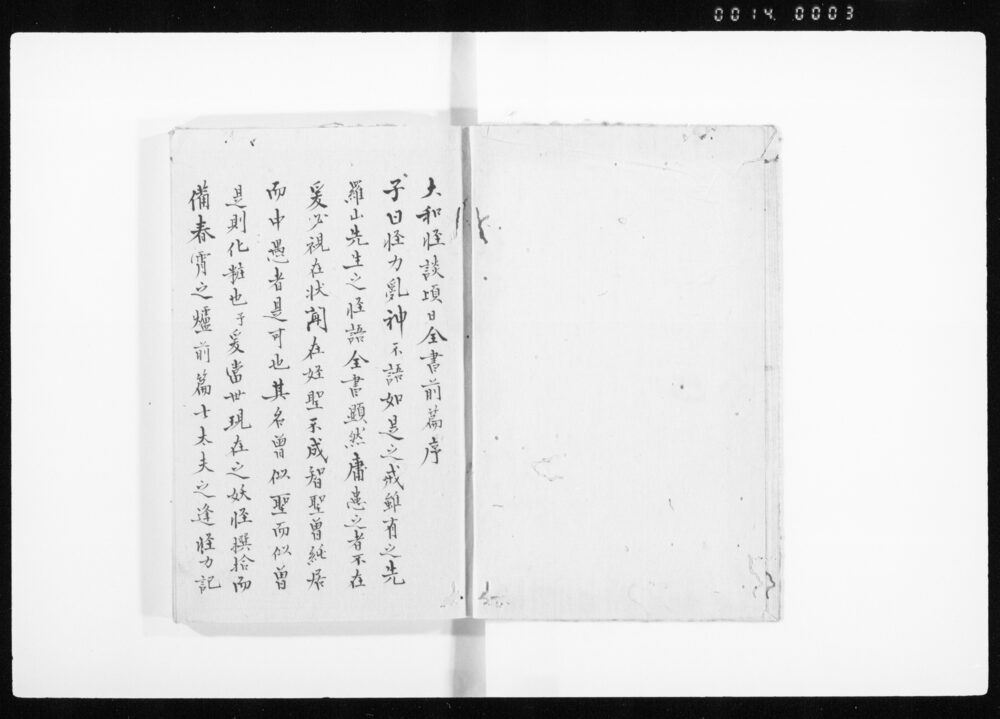 0014. 0003
大和怪談頃日全書前篇序
子曰怪力亂神不語如是之戒雖有之先
羅山先生之怪語全書顯然庸愚之者不在
爰必視在状聞在妊聖不成智聖曽純居
而中愚者是可也其名曽似聖而似曽
是則化粧也于爰當世現在之妖怪撰拾而
備春宵之爐前篇士太夫之逢怪力記